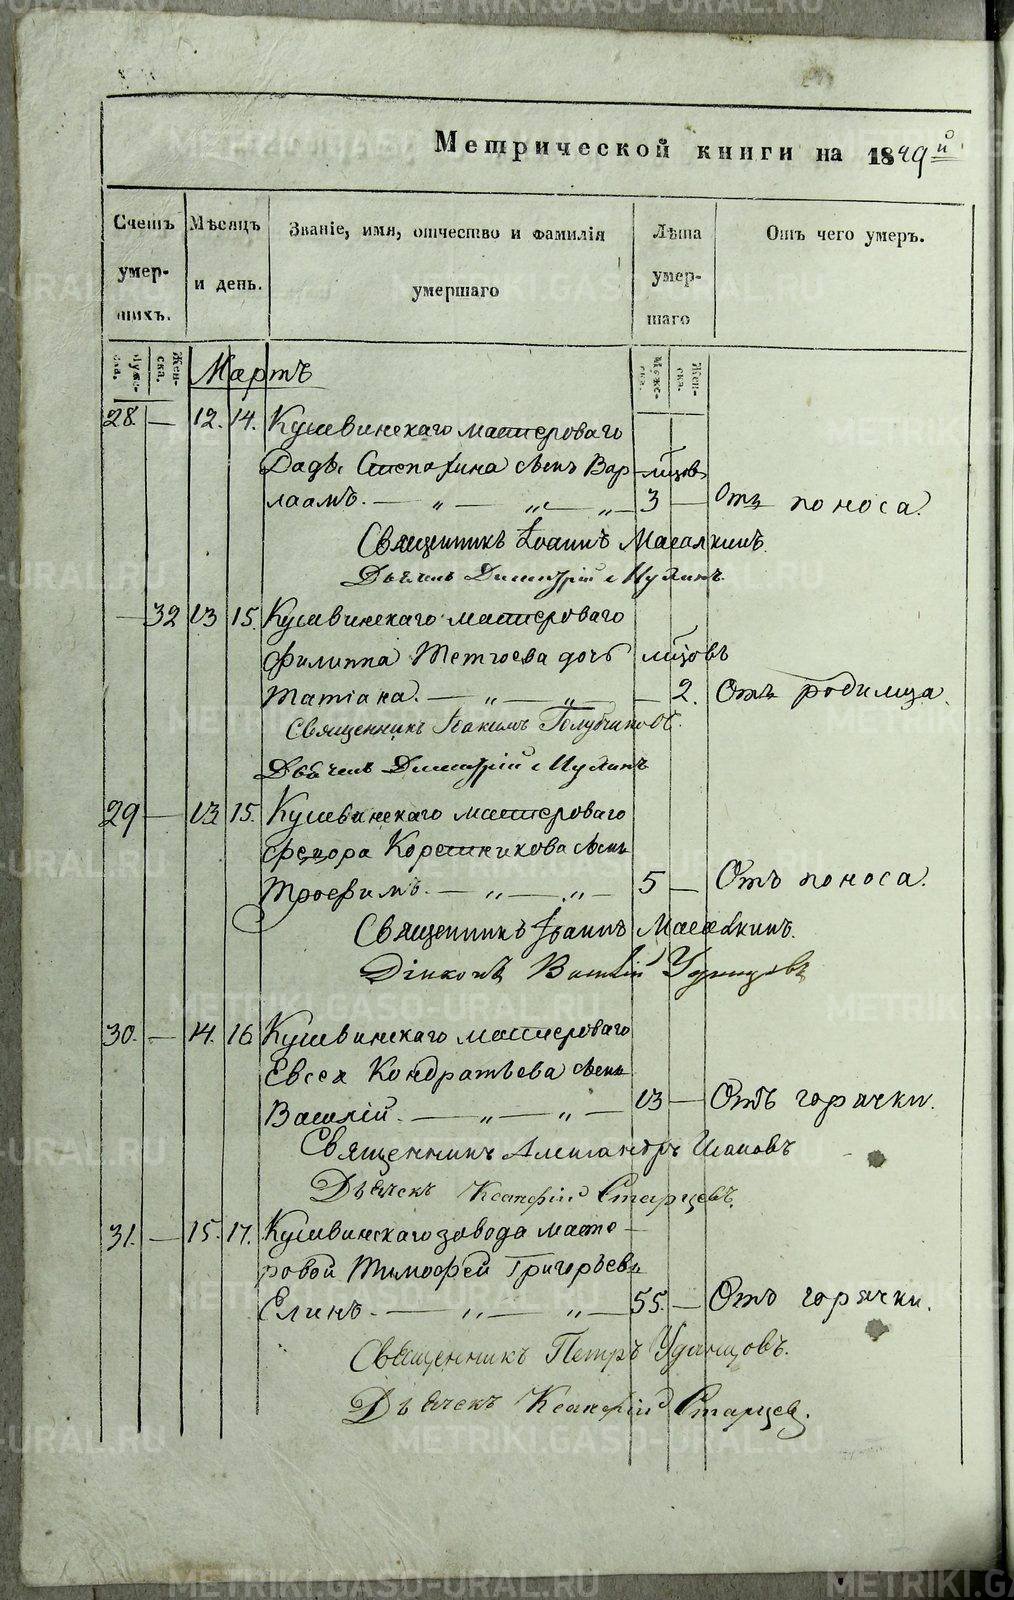 Метрической книги на 1849й
Счетъ умер- шихъ.
Мѣсяцъ и день.
Званіе, имя, отчество и фамилія умершаго
Лѣта умер- шаго
Отъ чего умеръ.
Муже- ска.
Жен- ска.
Мартъ
Муже- ска.
Жен- ска.
28. — 12. 14. Кушвинскаго мастероваго
сынъ Вар- мѣсяцовъ
лаамъ. — „ — „ — „ — 3 — Отъ поноса.
Священникъ Іоаннъ
Дьячекъ Димитрій
— 32 13 15. Кушвинскаго мастероваго
Филиппа дочь мѣсяцовъ
Татіана. — „ — „ — 2. Отъ родимца.
Священникъ Іоакимъ Голубчиковъ.
Дьячекъ Димитрій
29 — 13 15. Кушвинскаго мастероваго
Федора Корешникова сынъ
Трофимъ. — „ — „ — 5 — Отъ поноса.
Священникъ Іоаннъ
Діаконъ Василій Удинцовъ
30. — 14. 16 Кушвинскаго мастероваго
Евсея Кондратьева сынъ
Василій. — „ — „ — 13 — Отъ горячки.
Священникъ Александръ
Дьячекъ Ксанфій Старцевъ.
31. — 15. 17. Кушвинскаго завода масте-
ровой Тимофей Григорьевъ
Елинъ. — „ — „ — 55. — Отъ горячки.
Священникъ Петръ Удинцовъ.
Дьячекъ Ксанфій Старцев.
METRIKI.GASO-URAL.RU